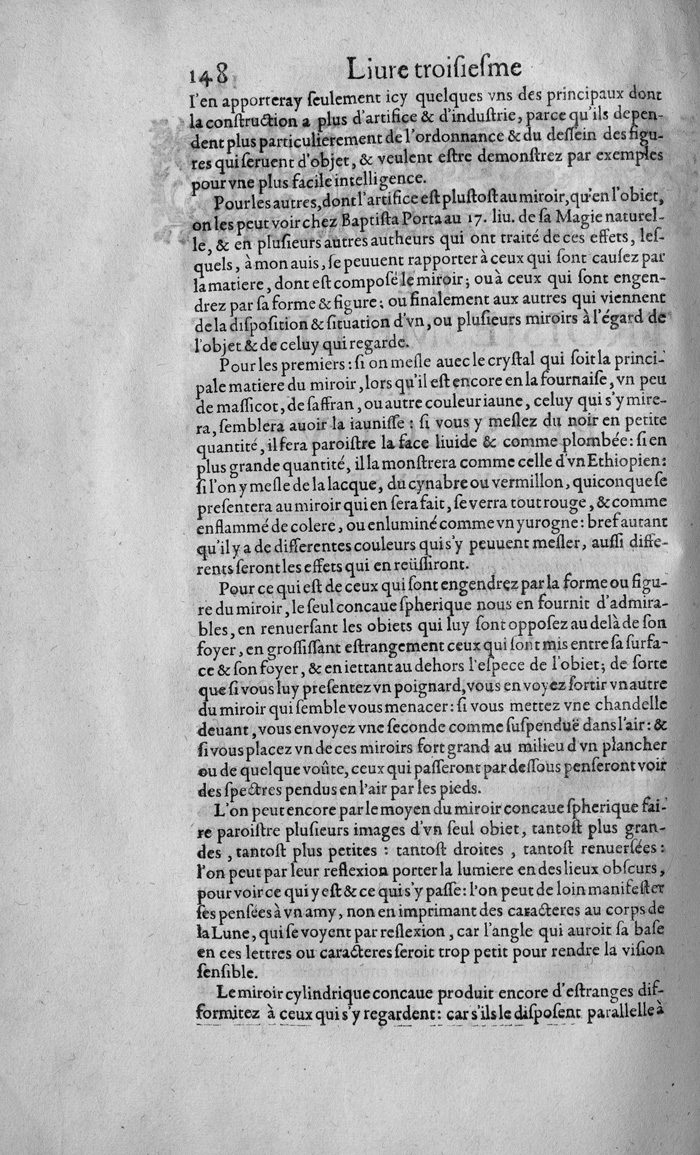 148 Liure troisiesme
I'en apporteray ſeulement icy quelques vns des principaux dont
la conſtruction a plus d'artifice & d'induſtrie, parce qu'ils depen-
dent plus particulierement de l'ordonnance & du deſſein des figu-
res qui ſeruent d'objet, & veulent eſtre demonſtrez par exemples
pour vne plus facile intelligence.
Pour les autres, dont l'artifice eſt pluſtoſt au miroir, qu'en l'obiet,
on les peut voir chez Baptiſta Porta au 17. liu. de ſa Magie naturel-
le, & en pluſieurs autres autheurs qui ont traité de ces effets, leſ-
quels, à mon auis, ſe peuuent rapporter à ceux qui ſont cauſez par
la matiere, dont eſt compoſé le miroir; ou à ceux qui ſont engen-
drez par ſa forme & figure; ou finalement aux autres qui viennent
de la diſpoſition & ſituation d'vn, ou pluſieurs miroirs à l'égard de
l'objet & de celuy qui regarde.
Pour les premiers: ſi on meſle auec le cryſtal qui ſoit la princi-
pale matiere du miroir, lors qu'il eſt encore en la fournaiſe, vn peu
de maſſicot, de ſaffran, ou autre couleur iaune, celuy qui s'y mire-
ra, ſemblera auoir la iauniſſe: ſi vous y meſlez du noir en petite
quantité, il fera paroiſtre la face liuide & comme plombée: ſi en
plus grande quantité, il la monſtrera comme celle d'vn Ethiopien:
ſi l'on y meſle de la lacque, du cynabre ou vermillon, quiconque ſe
preſentera au miroir qui en ſera fait, ſe verra tout rouge, & comme
enflammé de colere, ou enluminé comme vn yurogne: bref autant
qu'il y a de differentes couleurs qui s'y peuuent meſler, auſſi diffe-
rents ſeront les effets qui en reüſſiront.
Pour ce qui eſt de ceux qui ſont engendrez par la forme ou figu-
re du miroir, le ſeul concaue ſpherique nous en fournit d'admira-
bles, en renuerſant les obiets qui luy ſont oppoſez au delà de ſon
foyer, en groſſiſſant eſtrangement ceux qui ſont mis entre ſa ſurfa-
ce & ſon foyer, & en iettant au dehors l'eſpece de l'obiet; de ſorte
que ſi vous luy preſentez vn poignard, vous en voyez ſortir vn autre
du miroir qui ſemble vous menacer: ſi vous mettez vne chandelle
deuant, vous en voyez vne ſeconde comme ſuſpenduë dans l'air: &
ſi vous placez vn de ces miroirs fort grand au milieu d'vn plancher
ou de quelque voûte, ceux qui paſſeront par deſſous penſeront voir
des ſpectres pendus en l'air par les pieds.
L'on peut encore par le moyen du miroir concaue ſpherique fai-
re paroiſtre pluſieurs images d'vn ſeul obiet, tantoſt plus gran-
des, tantoſt plus petites: tantoſt droites, tantoſt renuerſées:
l'on peut par leur reflexion porter la lumiere en des lieux obſcurs,
pour voir ce qui y eſt & ce qui s'y paſſe: l'on peut de loin manifeſter
ſes penſées à vn amy, non en imprimant des caracteres au corps de
la Lune, qui ſe voyent par reflexion, car l'angle qui auroit ſa baſe
en ces lettres ou caracteres ſeroit trop petit pour rendre la viſion
ſenſible.
Le miroir cylindrique concaue produit encore d'eſtranges dif-
formitez à ceux qui s'y regardent: car s'ils le diſpoſent parallelle à